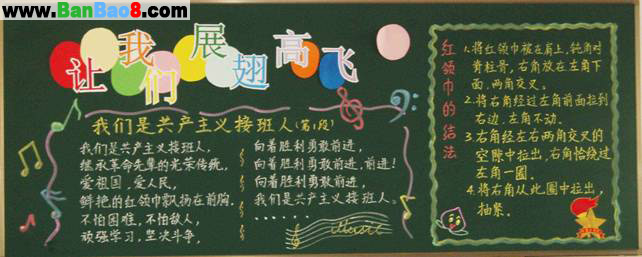 www.BanBao8.com
让我们展翅高飞
我们是共产主义接班人(第1段)
我们是共产主义接班人,
继承革命先辈的光荣传统,
爱祖国,爱人民,
鲜艳的红领巾飘扬在前胸.
不怕困难,不怕敌人,
顽强学习,坚决斗争,
向着胜利勇敢前进,
向着胜利勇敢前进,前进!
向着胜利勇敢前进,
我们是共产主义接班人.
......
Music
红领巾的结法
1.将红领巾披在肩上,钝角对
脊柱骨,右角放在左角下
面,两角交叉.
2.将右角经过左角前面拉到
右边,左角不动.
3.右角经左右两角交叉的
空隙中拉出,右角恰绕过
左角一圈.
4.将右角从此圈中拉出,
抽紧.